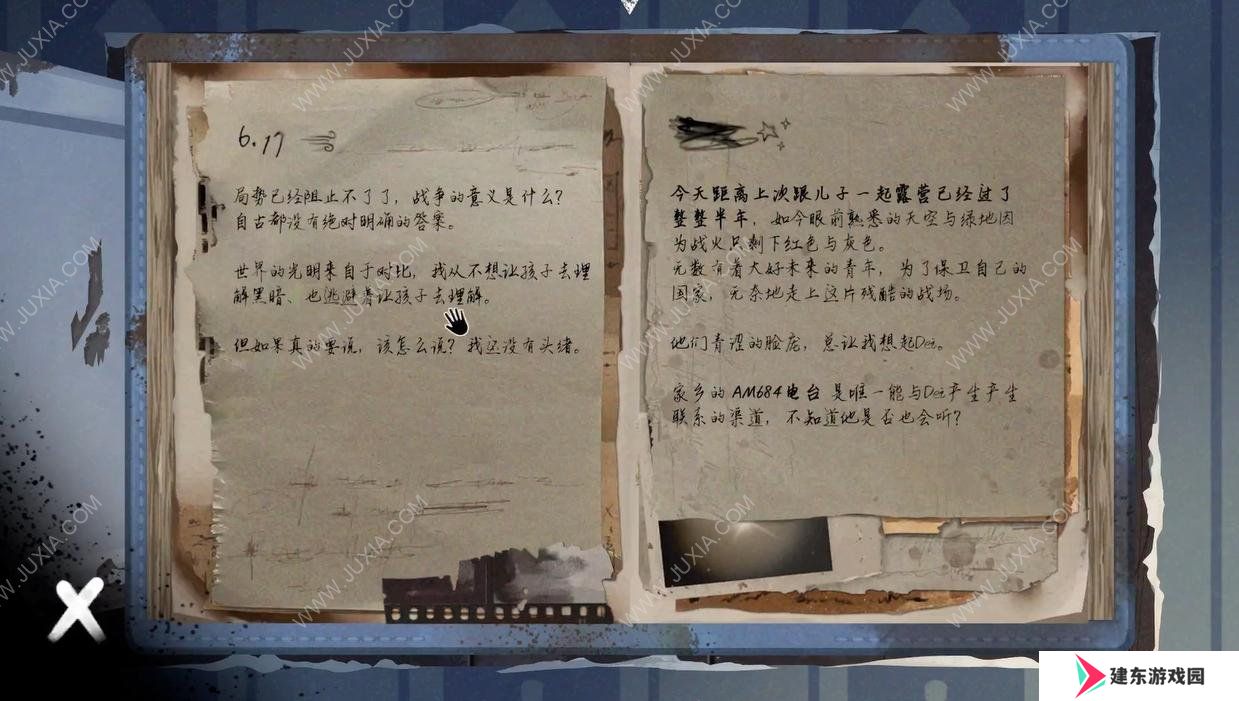 6.17
局势已经阻止不了了，战争的意义是什么？
自古都没有绝对明确的答案。
世界的光明来自于对比，我从不想让孩子去理
解黑暗、也逃避着让孩子去理解。
但如果真的要说，该怎么说？我还没有头绪。
今天距离上次跟儿子一起露营已经过了
整整半年，如今眼前熟悉的天空与绿地因
为战火只剩下红色与灰色。
无数有着大好未来的青年，为了保卫自己的
国家，无奈地走上这片残酷的战场。
他们青涩的脸庞，总让我想起Dei。
家乡的 AM684电台 是唯一能与Dei产生产生
联系的渠道，不知道他是否也会听？
WWW.JUXIA.COM
建东游戏园